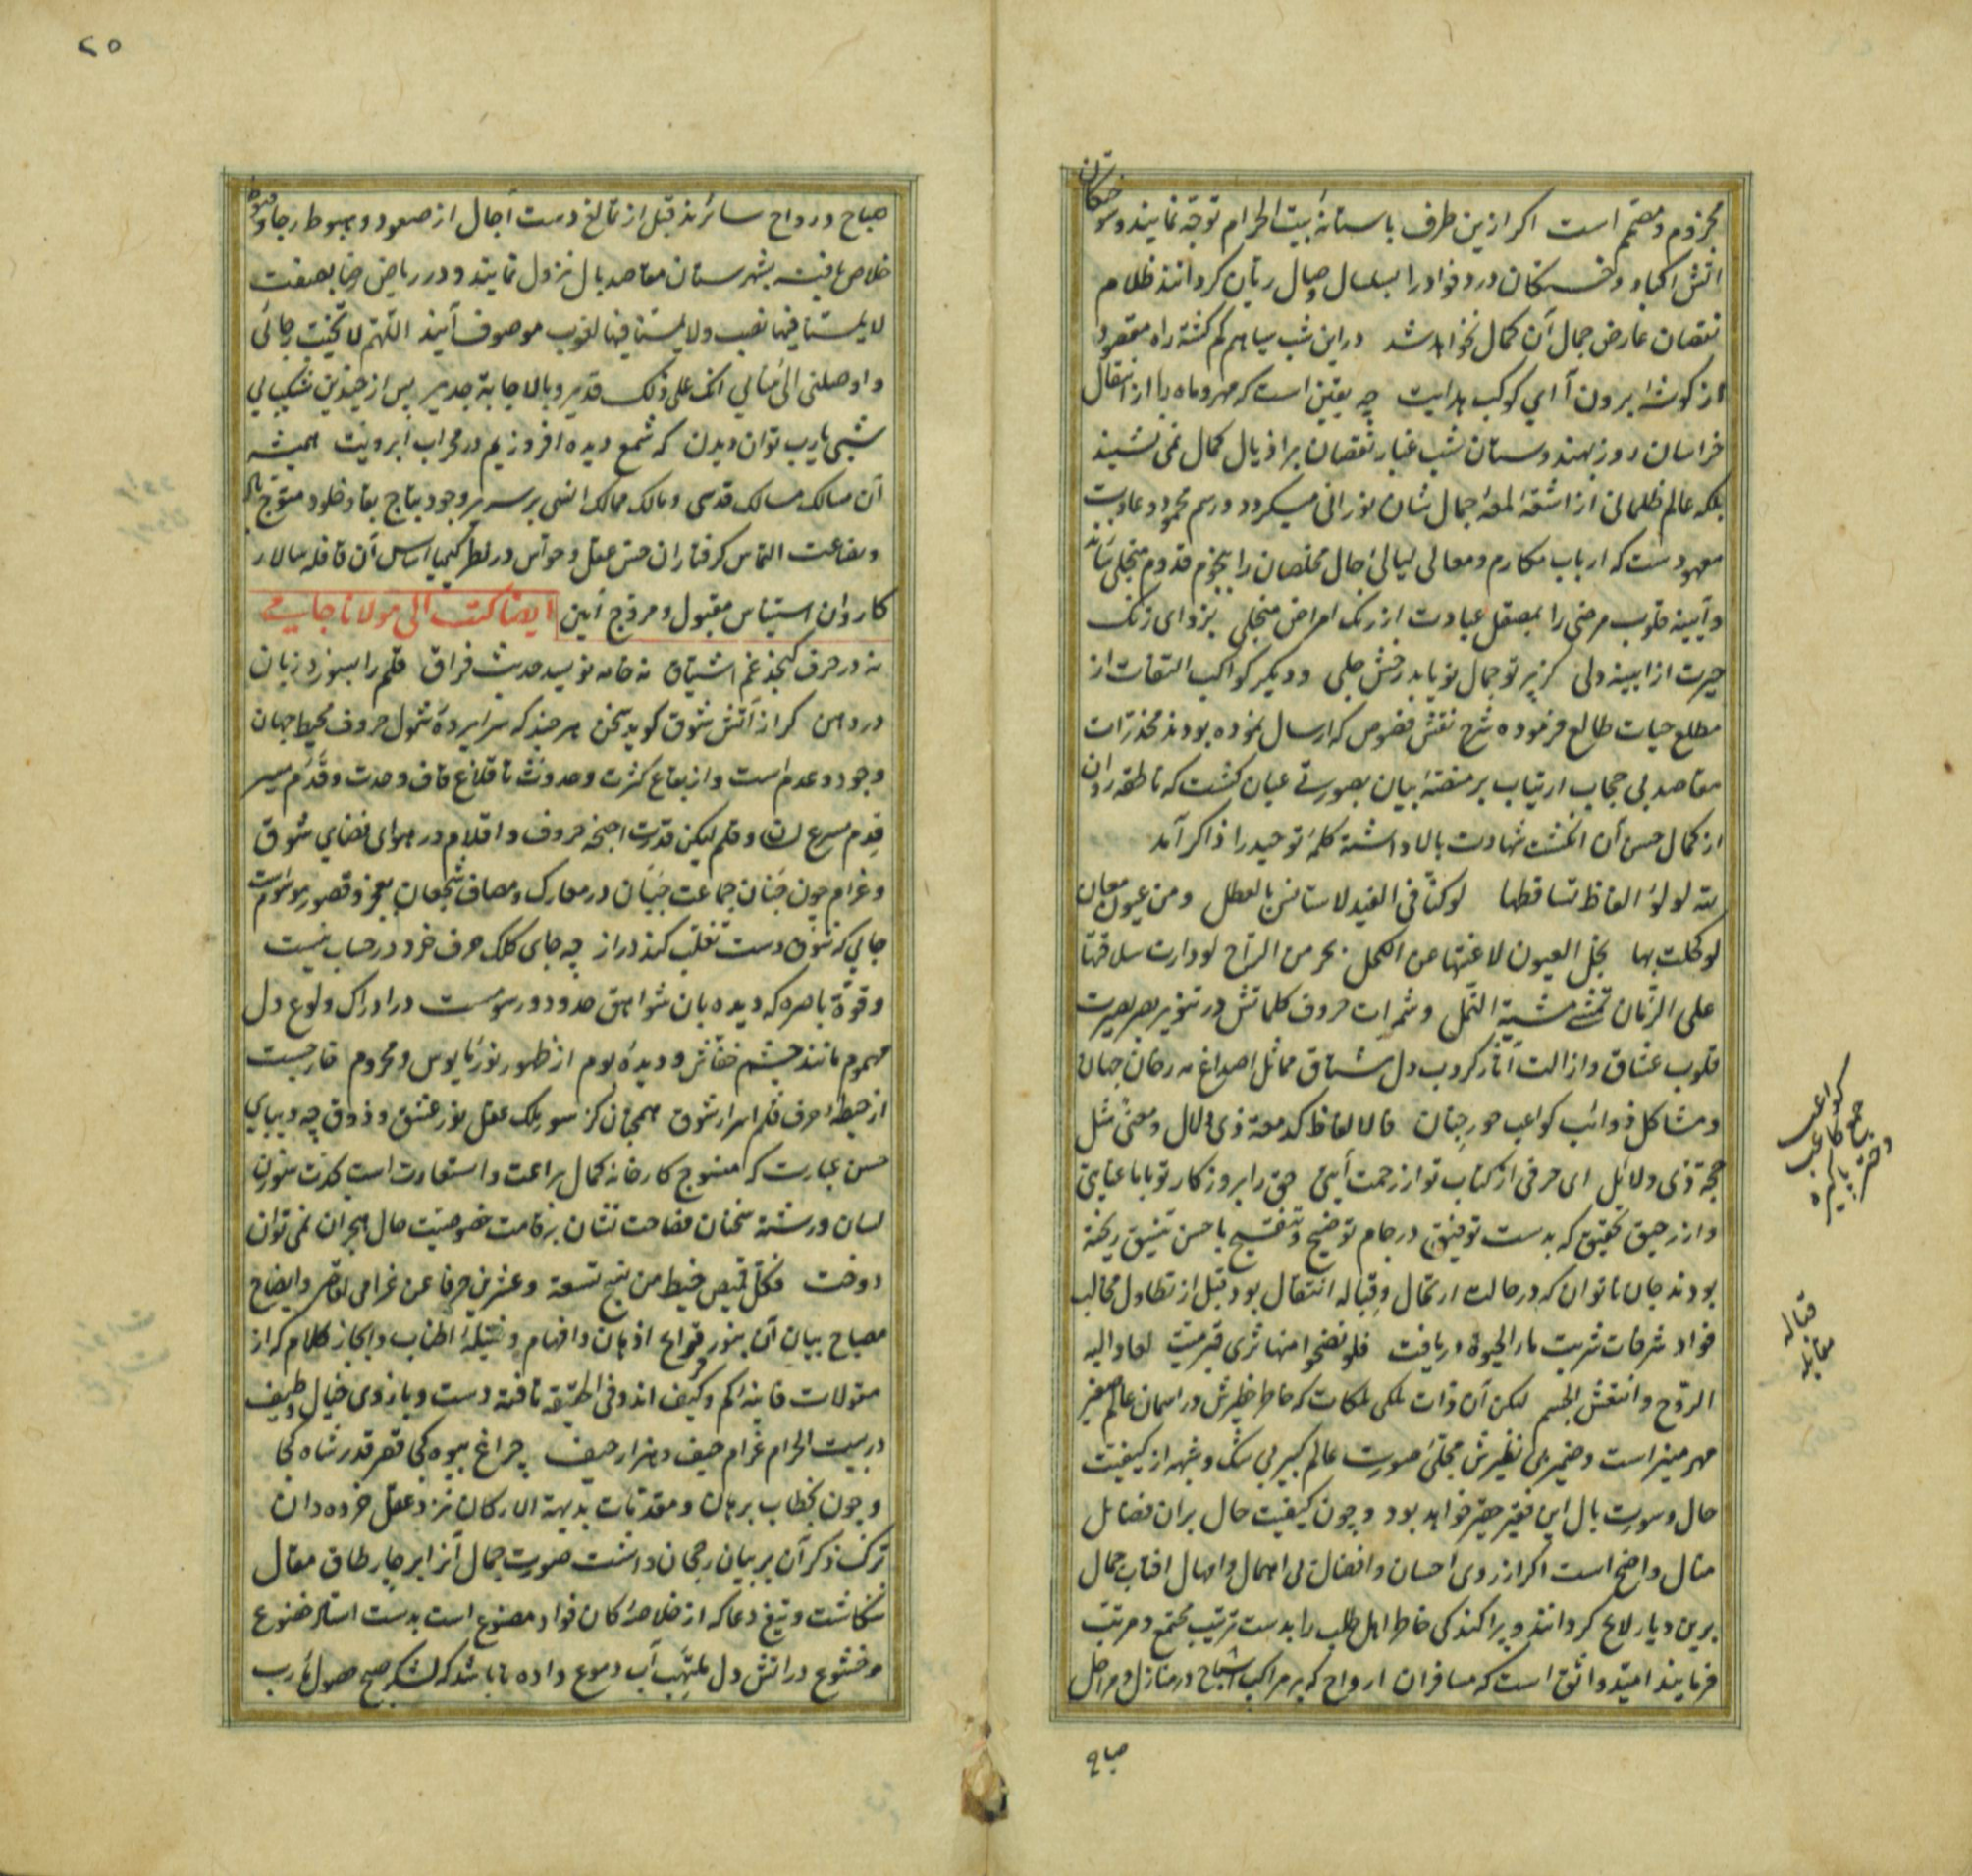 مجزوم و مصمم است اکر ازین طرف باستانهٔ بیت الحرام توجه نمایند و سوختکان
اتش اکباد و خستکان درد فواد را بسلسال وصال ریان کردانند ظلام
نقصان عارض جمال آن کمال نخواهد شد در این شب سیاهم کم کشته راه مقصود
از کوشه ابرون آ ای کوکب هدایت چه یقین است که مهر و ماه را از انتقال
خراسان روز بهندوستان شب غبار نقصان بر اذیال کمال نمی نشیند
بلکه عالم ظلمانی از اشعه لمعهٔ جمال شان نورانی میکردد و رسم محمود و عادت
معهودست که ارباب مکارم و معالی لیالیٔ اجال مخلصان را بنجوم قدوم منجلی
و آیینه قلوب مرضی را بمصقل عیادت از زنک امراض منجلی بزدای زنک
حیرت از ایینه دلی کز پرتو جمال نو یابد رخش جلی و دیکر کواکب التفات از
مطلع حیات طالع فرموده شرح نقش فصوص که ارسال نموده بودند مخدرات
مقاصد بی حجاب ارتیاب بر منصهٔ بیان بصورتی عیان کشت که ناطقه روان
از کمال حسن آن انکشت شهادت بالا داشته کلمهٔ توحید را ذاکر آمد
لله لولؤ الفاظ تساقطها لو کن فی الغید لاستانسن بالعطل و من عیون معان
لو کحلت بها نجل العیون لاغنتها عن الکحل سحر من الراح لو دارت سلافتها
علی الزمان تمشی مشیة الثمل و ثمرات حروف کلماتش در تنویر بصر بصیرت
قلوب عشاق و ازالت آثار کروب دل مشتاق مماثل اصداغ مه رخان جهان
و مشاکل ذوائب کواعب حور جنان فالالفاظ کدمعة ذی دلال و معنی مثل
حجة ذی دلائل ای حرفی از کتاب تو از رحمت آیتی حق را بروز کار تو با ما عنایتی
و از رحیق تحقیق که بدست توفیق در جام توضیح و تنقیح با حسن تنسیق ریخته
بودند جان ناتوان که در حالت ارتحال و قباله انتقال بود قبل از تطاول مخالب
فواد شرفات شربت ماء الحیوة دریافت فلو نضحوا منها ثری قبر میت لعاد الیه
الروح و انتعش الجسم لیکن آن ذات ملکی ملکات که خاطر خطیرش در اسمان عالم صغیر
مهر منیر است و ضمیر بی نظیرش مجلی صورت عالم کبیر بی شک و شبهه از کیفیت
حال و سورت بال این فقیر حقیر خواهد بود و چون کیفیت حال بران فضائل
منال واضح است اکر از روی احسان و افضال بی اهمال و امهال افتاب جمال
برین دیار لایح کردانند و پراکندکی خاطر اهل طلب را بدست ترتیب مجتمع و مرتب
فرمایند امید واثق است که مسافران ارواح که بر مراکب اشباح در منازل و مراحل
صباح
کواعب
جمع کاعب
دختر پاکیزه
قباله
مقابله
۲۵
صباح و رواح سائرند قبل از تمالغ دست آجال از صعود و هبوط رجا و قنوط
خلاص یافته بشهرستان مقاصد بال نزول نمایند و در ریاض رضا بصفت
لا یمسنا فیها نصب و لا یمسنا فیها لغوب موصوف آیند اللهم لا تخیب رجائی
و اوصلنی الی منایی انک علی ذلک قدیر و بالاجابة جدیر پس از چندین شکیبایی
شبی یا رب توان دیدن که شمع دیده افروزیم در محراب ابرویت همیشه
آن سالک مسالک قدسی و مالک ممالک انسی بر سریر وجود بتاج بقا و خلود متوج باد
و بضاعت التماس کرفتاران حبس عقل و حواس در نظر کیمیا اساس آن قافله سالار
کاروان استیناس مقبول و مروج آمین ایضا کتب الی مولانا جامی
نه در حرف کنجد غم اشتیاق نه خامه نویسد حدیث فراق قلم را بسوزد زبان
در دهن کر از آتش شوق کوید سخن هر چند که سراپردهٔ شمول حروف محیط جهان
وجود و عدم است و از بقاع کثرت و حدوث تا قلاع قاف وحدت و قدم سیر
قدم سریع لسان و قلم لیکن قدرت اجنحه حروف و اقلام در هوای فضای شوق
و غرام چون جنان جماعت جبان در معارک و مصاف شجعان بعجز و قصور موسومست
جایی که شوق دست تغلب کند دراز چه جای کلک حرف خرد در حساب نیست
و قوة باصره که دیده بان شواهق حدود و رسومست در ادراک ولوع دل
مهموم مانند چشم خفاش و دیده بوم از ظهور نور مایوس و محروم خارجست
از حیطهٔ حرف قلم اسرار شوق همچنان کز سور ملک عقل نور عشق و ذوق چه دیبای
حسن عبارت که منسوج کارخانه کمال براعت و استعارت است بدست سوزن
لسان و رشته سخنان فصاحت نشان بر قامت خصوصیت حال هجران نمی توان
دوخت فکل قمیص خیط من نسج تسعة و عشرین حرفا عن غرامی قاصر و ایضاح
مصباح بیان آن بنور قداح اذهان و افهام و فتیلهٔ اطناب و ایجاز کلام که از
مقولات فاینه کم و کیف اند و فی الحقیقه تافته دست و بازوی خیال و طیف
در بیت الحرام غرام حیف و هزار حیف چراغ بیوه کجا قصر قدر شاه کجا
و چون بخطاب برهان و مقدمات بدیهة الارکان نزد عقل خرده دان
ترک ذکر آن بر بیان رجحان داشت صورت جمال آنرا بر چار طاق مقال
ننکاشت و تیغ دعا که از خلاصهٔ کان فواد مصنوع است بدست استاد خضوع
و خشوع در اتش دل ملتهب آب دموع داده تا باشد که لشکر صبح حصول مآرب